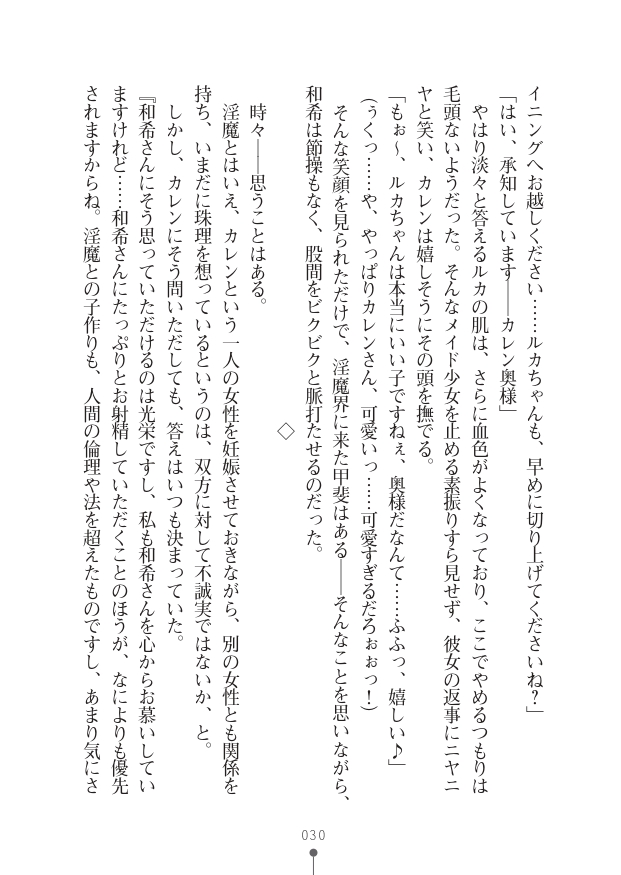 イニングへお越しください……ルカちゃんも、早めに切り上げてくださいね？」
「はい、承知しています――カレン奥様」
　やはり淡々と答えるルカの肌は、さらに血色がよくなっており、ここでやめるつもりは
毛頭ないようだった。そんなメイド少女を止める素振りすら見せず、彼女の返事にニヤニ
ヤと笑い、カレンは嬉しそうにその頭を撫でる。
「もぉ～、ルカちゃんは本当にいい子ですねぇ、奥様だなんて……ふふっ、嬉しい♪」
（ぅくっ……や、やっぱりカレンさん、可愛いっ……可愛すぎるだろぉぉっ！）
　そんな笑顔を見られただけで、淫魔界に来た甲斐はある――そんなことを思いながら、
和希は節操もなく、股間をビクビクと脈打たせるのだった。
◇
　時々――思うことはある。
　淫魔とはいえ、カレンという一人の女性を妊娠させておきながら、別の女性とも関係を
持ち、いまだに珠理を想っているというのは、双方に対して不誠実ではないか、と。
　しかし、カレンにそう問いただしても、答えはいつも決まっていた。
『和希さんにそう思っていただけるのは光栄ですし、私も和希さんを心からお慕いしてい
ますけれど……和希さんにたっぷりとお射精していただくことのほうが、なによりも優先
されますからね。淫魔との子作りも、人間の倫理や法を超えたものですし、あまり気にさ
030